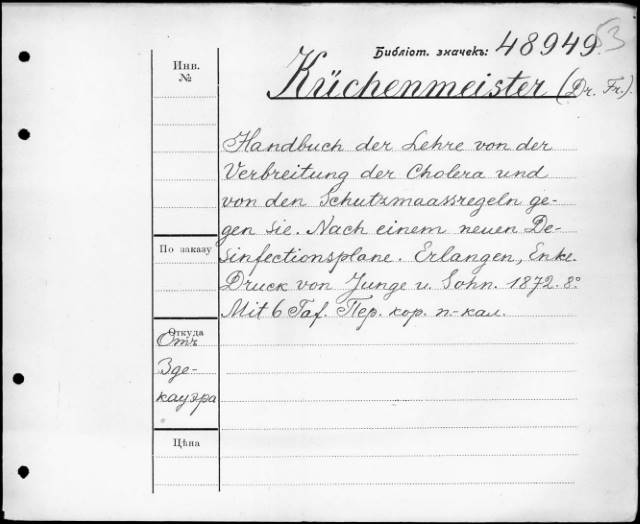 Библіот. значекъ: 48949
53
Инв.
№
Küchenmeister (Dr. Fr.).
Handbuch der Lehre von der
Verbreitung der Cholera und
von den Schutzmaassregeln ge-
gen sie. Nach einem neuen De-
По заказу
sinfectionsplane. Erlangen, Enke.
Druck von Junge u. Sohn. 1872. 8°.
Mit 6 Taf. Пер. кор. п.-кал.
Откуда
Отъ
Зде-
кауэра
Цѣна